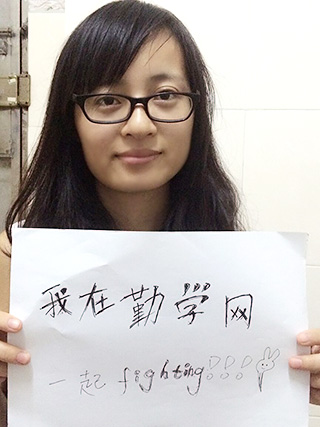 我在勤学网
一起 fighting!!!